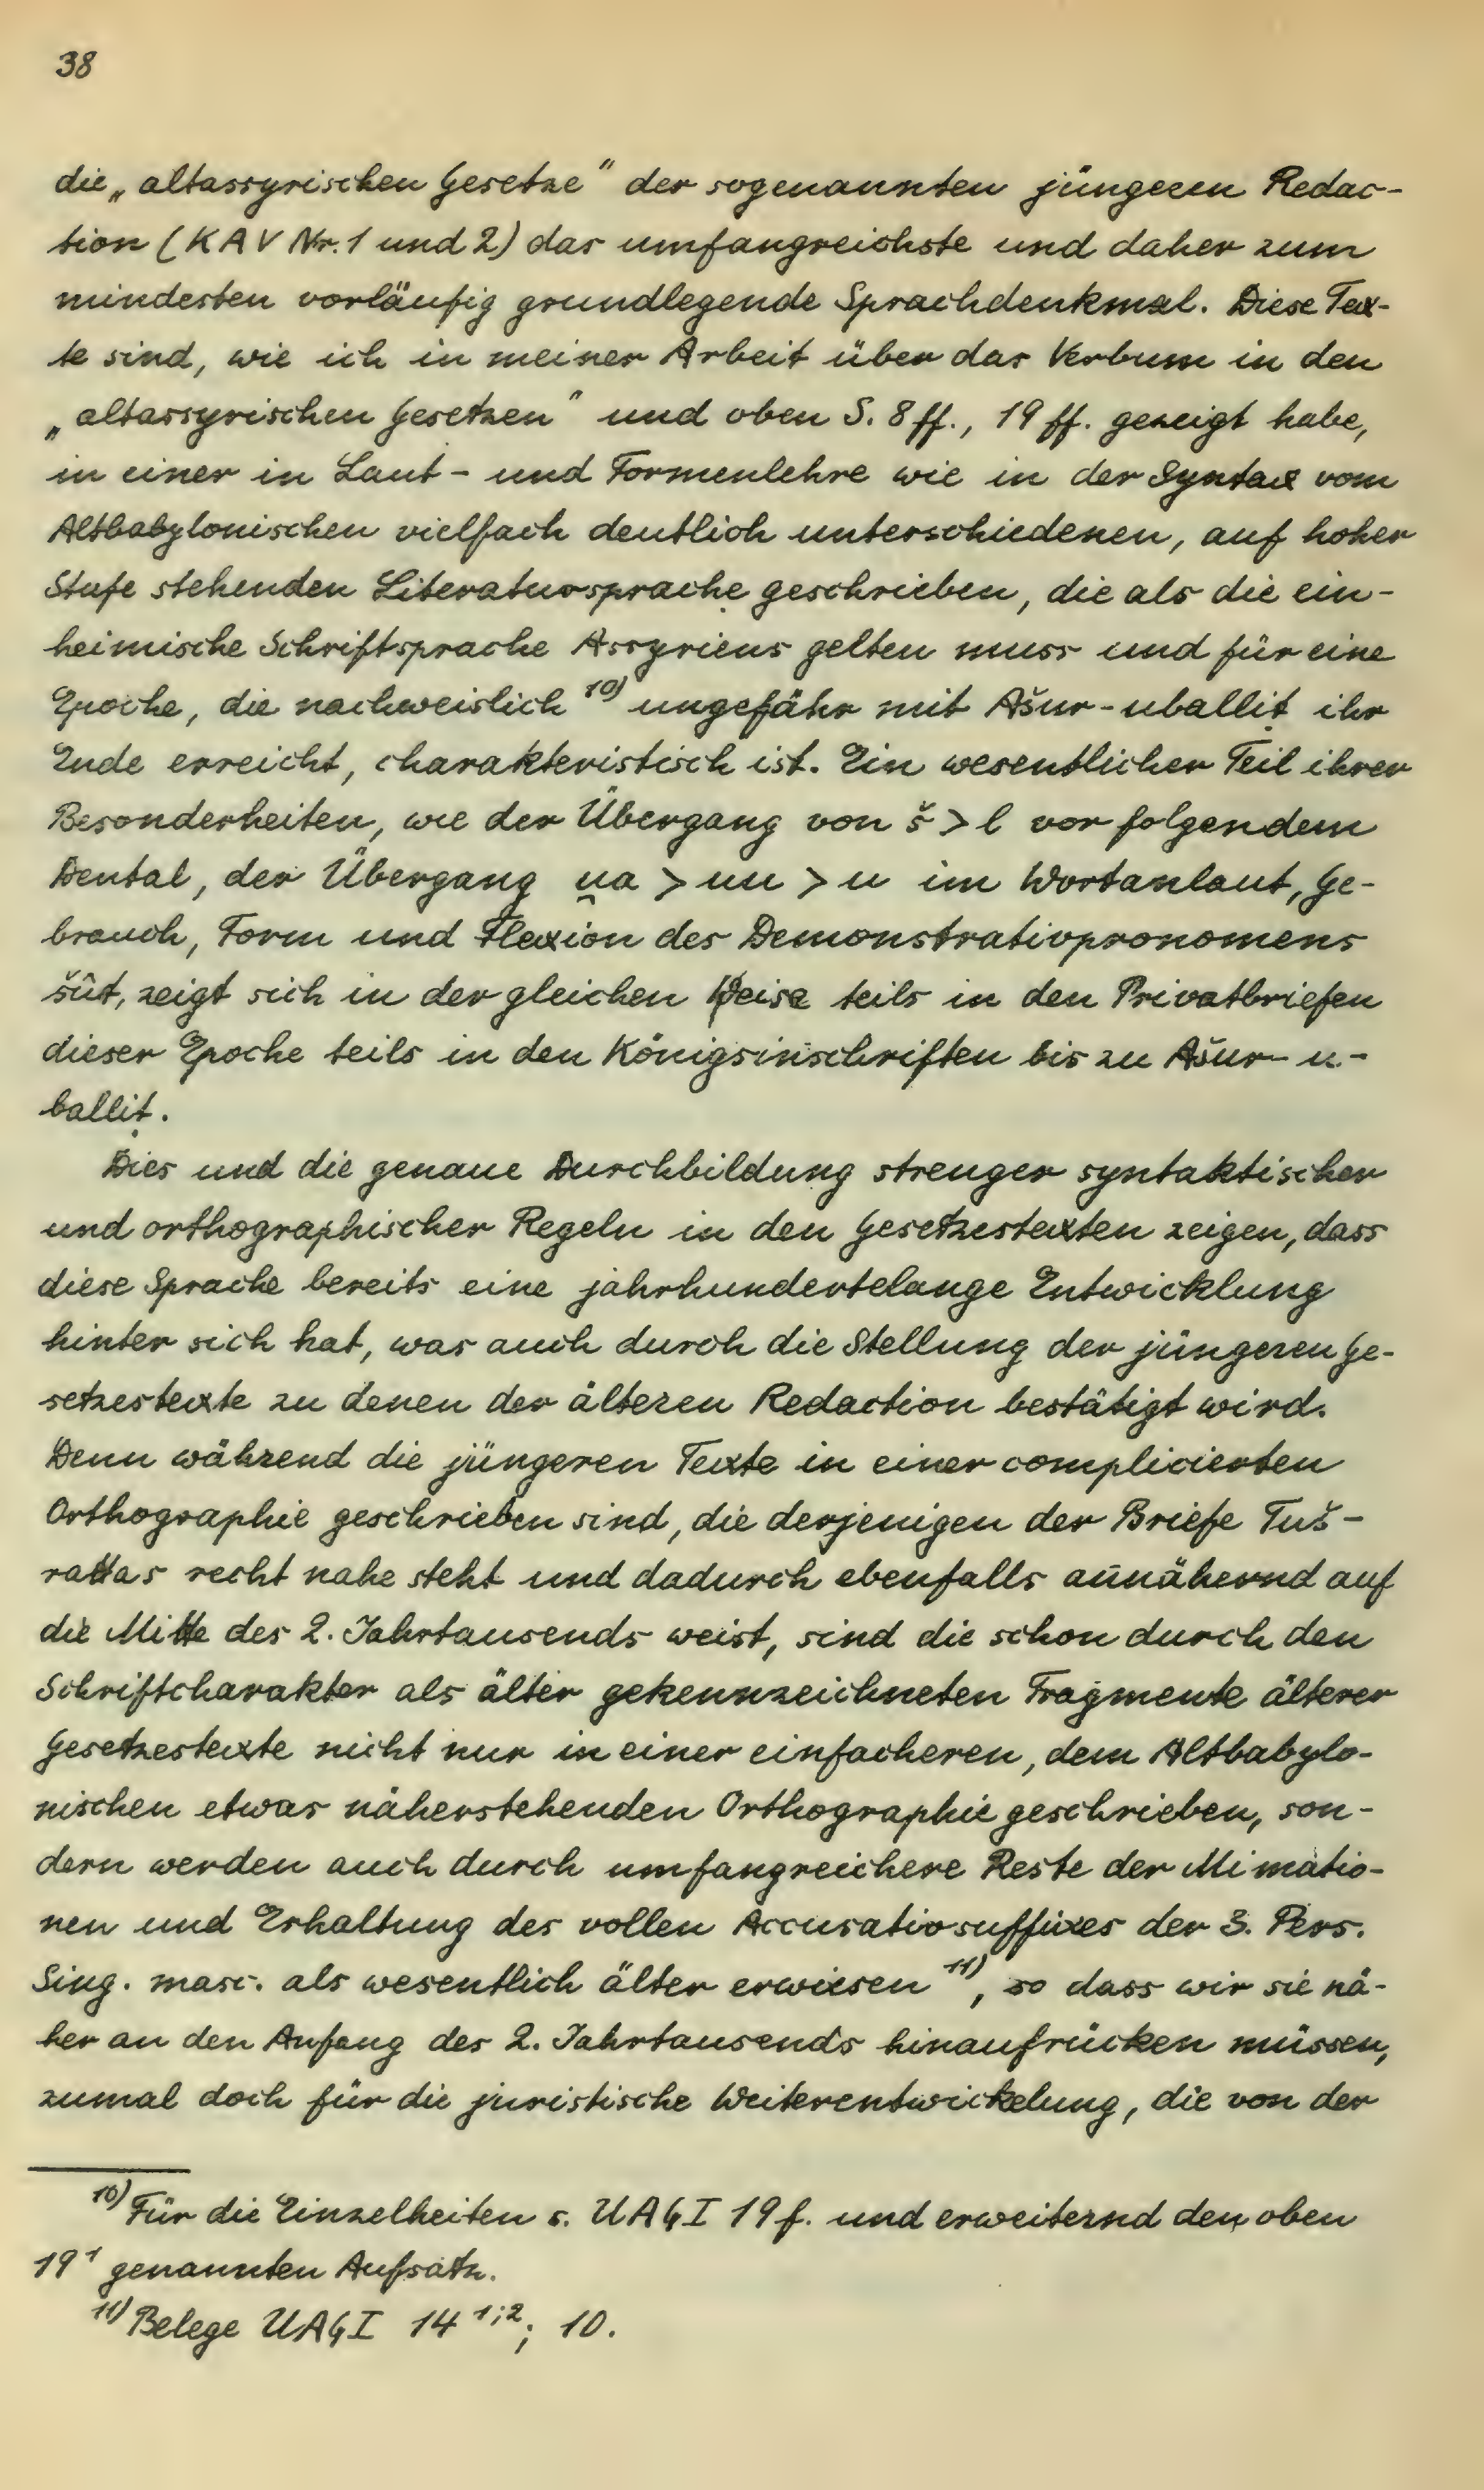 38
die „altassyrischen Gesetze" der sogenannten jüngeren Redac-
tion (KAV Nr. 1 und 2) das umfangreichste und daher zum
mindesten vorläufig grundlegende Sprachdenkmal. Diese Tex-
te sind, wie ich in meiner Arbeit über das Verbum in den
„altassyrischen Gesetzen" und oben S. 8 ff., 19 ff. gezeigt habe,
in einer in Laut- und Formenlehre wie in der Syntax vom
Altbabylonischen vielfach deutlich unterschiedenen, auf hoher
Stufe stehenden Literatursprache geschrieben, die als die ein-
heimische Schriftsprache Assyriens gelten muss und für eine
Epoche, die nachweislich ¹⁰⁾ ungefähr mit Ašur-uballiṭ ihr
Ende erreicht, charakteristisch ist. Ein wesentlicher Teil ihrer
Besonderheiten, wie der Übergang von š > l vor folgendem
Dental, der Übergang u̯a > uu > u im Wortanlaut, Ge-
brauch, Form und Flexion des Demonstrativpronomens
šût, zeigt sich in der gleichen Weise teils in den Privatbriefen
dieser Epoche teils in den Königsinschriften bis zu Ašur-u-
balliṭ.
Dies und die genaue Durchbildung strenger syntaktischer
und orthographischer Regeln in den Gesetzestexten zeigen, dass
diese Sprache bereits eine jahrhundertelange Entwicklung
hinter sich hat, was auch durch die Stellung der jüngeren Ge-
setzestexte zu denen der älteren Redaction bestätigt wird.
Denn während die jüngeren Texte in einer complicierten
Orthographie geschrieben sind, die derjenigen der Briefe Tuš-
rattas recht nahe steht und dadurch ebenfalls annähernd auf
die Mitte des 2. Jahrtausends weist, sind die schon durch den
Schriftcharakter als älter gekennzeichneten Fragmente älterer
Gesetzestexte nicht nur in einer einfacheren, dem Altbabylo-
nischen etwas näherstehenden Orthographie geschrieben, son-
dern werden auch durch umfangreichere Reste der Mimatio-
nen und Erhaltung des vollen Accusativsuffixes der 3. Pers.
Sing. masc. als wesentlich älter erwiesen ¹¹⁾, so dass wir sie nä-
her an den Anfang des 2. Jahrtausends hinaufrücken müssen,
zumal doch für die juristische Weiterentwickelung, die von der
¹⁰⁾ Für die Einzelheiten s. UAG I 19 f. und erweiternd den oben
19¹ genannten Aufsatz.
¹¹⁾ Belege UAG I 14 ¹;²; 10.